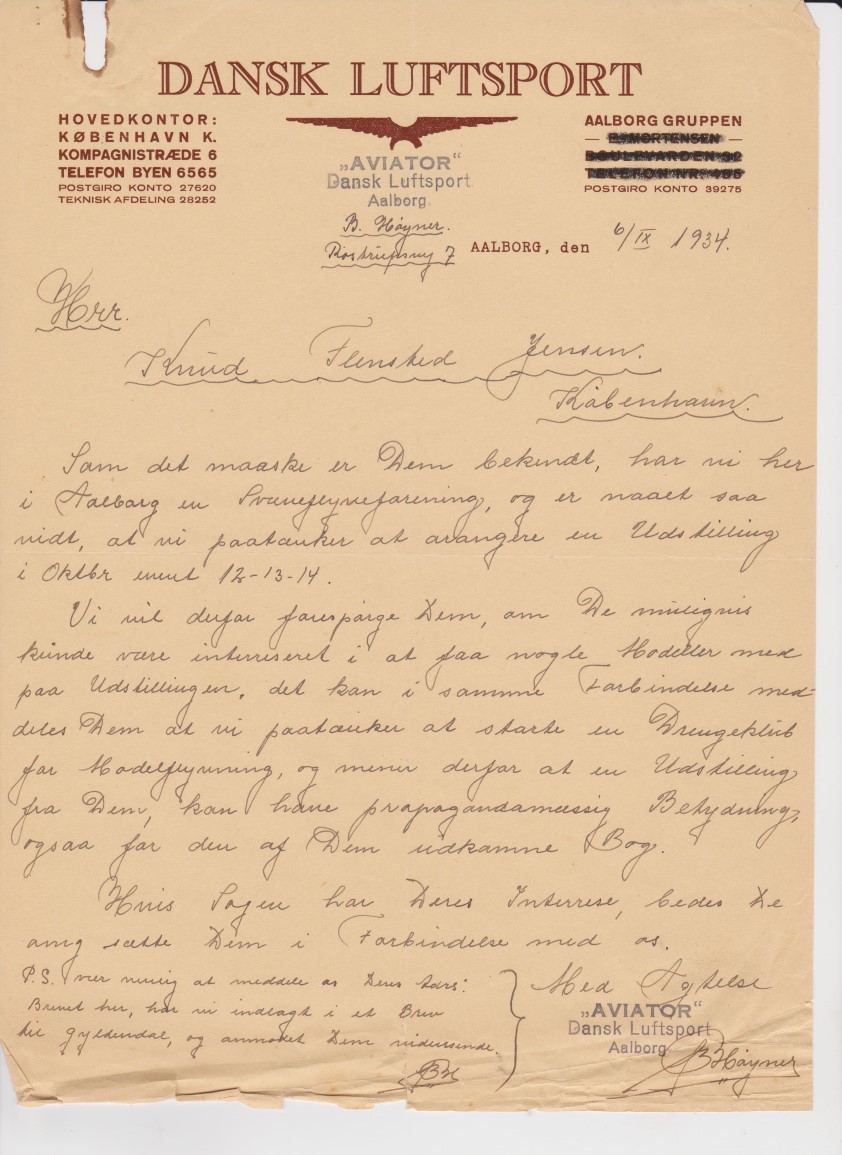 DANSK LUFTSPORT
HOVEDKONTOR:
KØBENHAVN K.
KOMPAGNISTRÆDE 6
TELEFON BYEN 6565
POSTGIRO KONTO 27620
TEKNISK AFDELING 28252
„AVIATOR“
Dansk Luftsport.
Aalborg.
B. Høyner.
Rostrupsvej 7
AALBORG GRUPPEN
B. MORTENSEN
BOULEVARDEN 32
TELEFON NR. 485
POSTGIRO KONTO 39275
AALBORG, den 6/IX 1934.
Hrr.
Knud Flensted Jensen.
København.
Som det maaske er Dem bekendt, har vi her
i Aalborg en Svæveflyveforening, og er naaet saa
vidt, at vi paatænker at arangere en Udstilling
i Oktbr event 12-13-14.
Vi vil derfor forespørge Dem, om De muligvis
kunde være interriseret i at faa nogle Modeller med
paa Udstillingen, det kan i samme Forbindelse med-
deles Dem at vi paatænker at starte en Drengeklub
for Modelflyvning, og mener derfor at en Udstilling
fra Dem, kan have propagandamæssig Betydning,
ogsaa for den af Dem udkomne Bog.
Hvis Sagen har Deres Interrese, bedes De
omg sætte Dem i Forbindelse med os.
P.S. vær venlig at meddele os Deres Adrs:
Brevet her, har vi indlagt i et Brev
til Gyldendal, og anmodet Dem videresende.
BH
Med Agtelse
„AVIATOR“
Dansk Luftsport
Aalborg
B Høyner